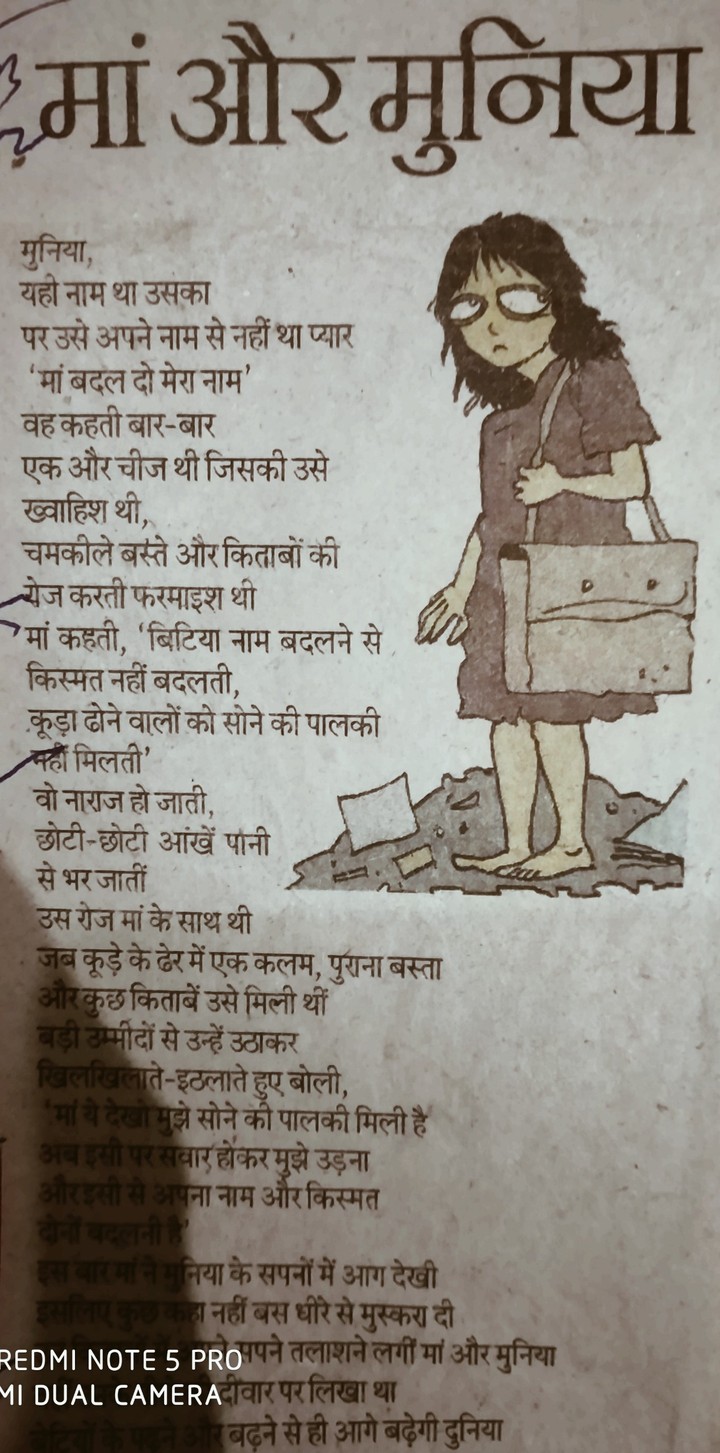 मां और मुनिया
मुनिया,
यही नाम था उसका
पर उसे अपने नाम से नहीं था प्यार
'मां बदल दो मेरा नाम'
वह कहती बार-बार
एक और चीज थी जिसकी उसे
ख्वाहिश थी,
चमकीले बस्ते और किताबों की
रोज करती फरमाइश थी
मां कहती, 'बिटिया नाम बदलने से
किस्मत नहीं बदलती,
कूड़ा ढोने वालों को सोने की पालकी
नहीं मिलती'
वो नाराज हो जाती,
छोटी-छोटी आंखें पानी
से भर जातीं
उस रोज मां के साथ थी
जब कूड़े के ढेर में एक कलम, पुराना बस्ता
और कुछ किताबें उसे मिली थीं
बड़ी उम्मीदों से उन्हें उठाकर
खिलखिलाते-इठलाते हुए बोली,
'मां ये देखो मुझे सोने की पालकी मिली है
अब इसी पर सवार होकर मुझे उड़ना
और इसी से अपना नाम और किस्मत
दोनों बदलनी है'
इस बार मां ने मुनिया के सपनों में आग देखी
इसलिए कुछ कहा नहीं बस धीरे से मुस्करा दी
सपने तलाशने लगीं मां और मुनिया
दीवार पर लिखा था
बेटियों के पढ़ने और बढ़ने से ही आगे बढ़ेगी दुनिया
REDMI NOTE 5 PRO
MI DUAL CAMERA